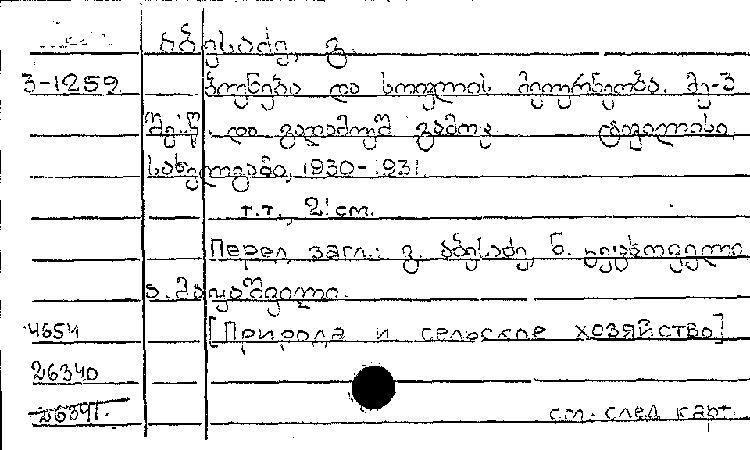 აბესაძე, გ.
3-1259 ბუნება და სოფლის მეურნეობა. მე-3
შეს. და გადამუშ. გამოც. ტფილისი,
სახელგამი, 1930-1931.
т.т., 21 cm.
Перел. загл.: გ. აბესაძე, ნ. კეცხოველი
ა. მაყაშვილი.
4654 [Природа и сельское хозяйство]
26340
26391. см. след карт.